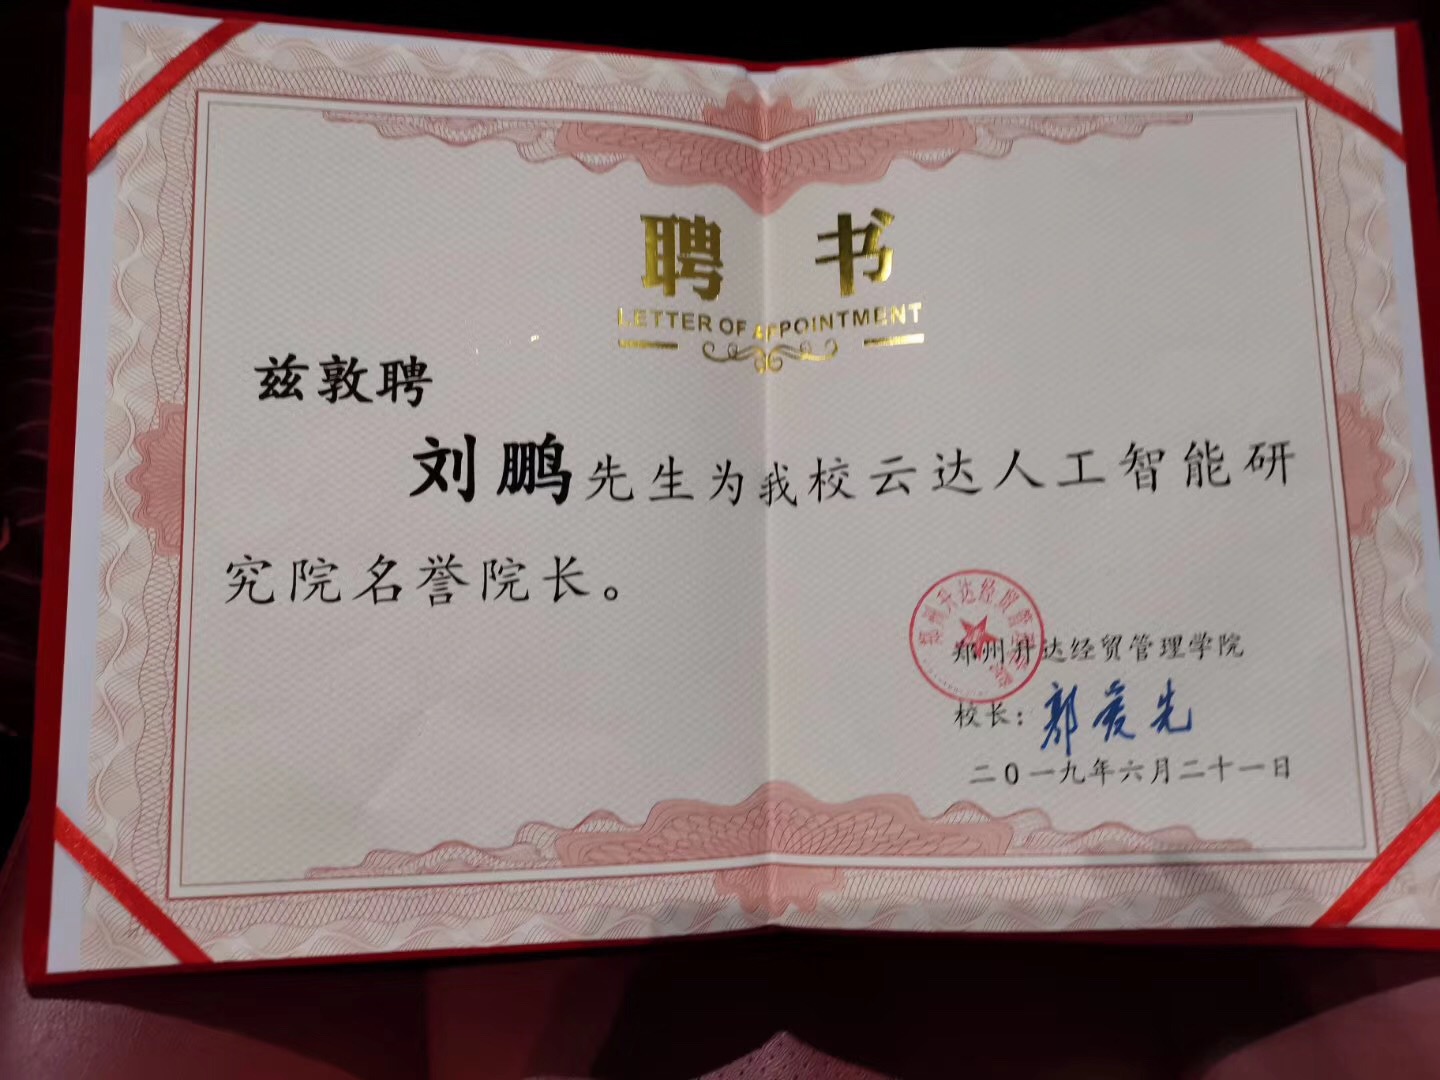 聘书
LETTER OF APPOINTMENT
兹敦聘
刘鹏先生为我校云达人工智能研
究院名誉院长。
郑州升达经贸管理学院
郑州升达经贸管理学院
校长：郭爱先
二0一九年六月二十一日